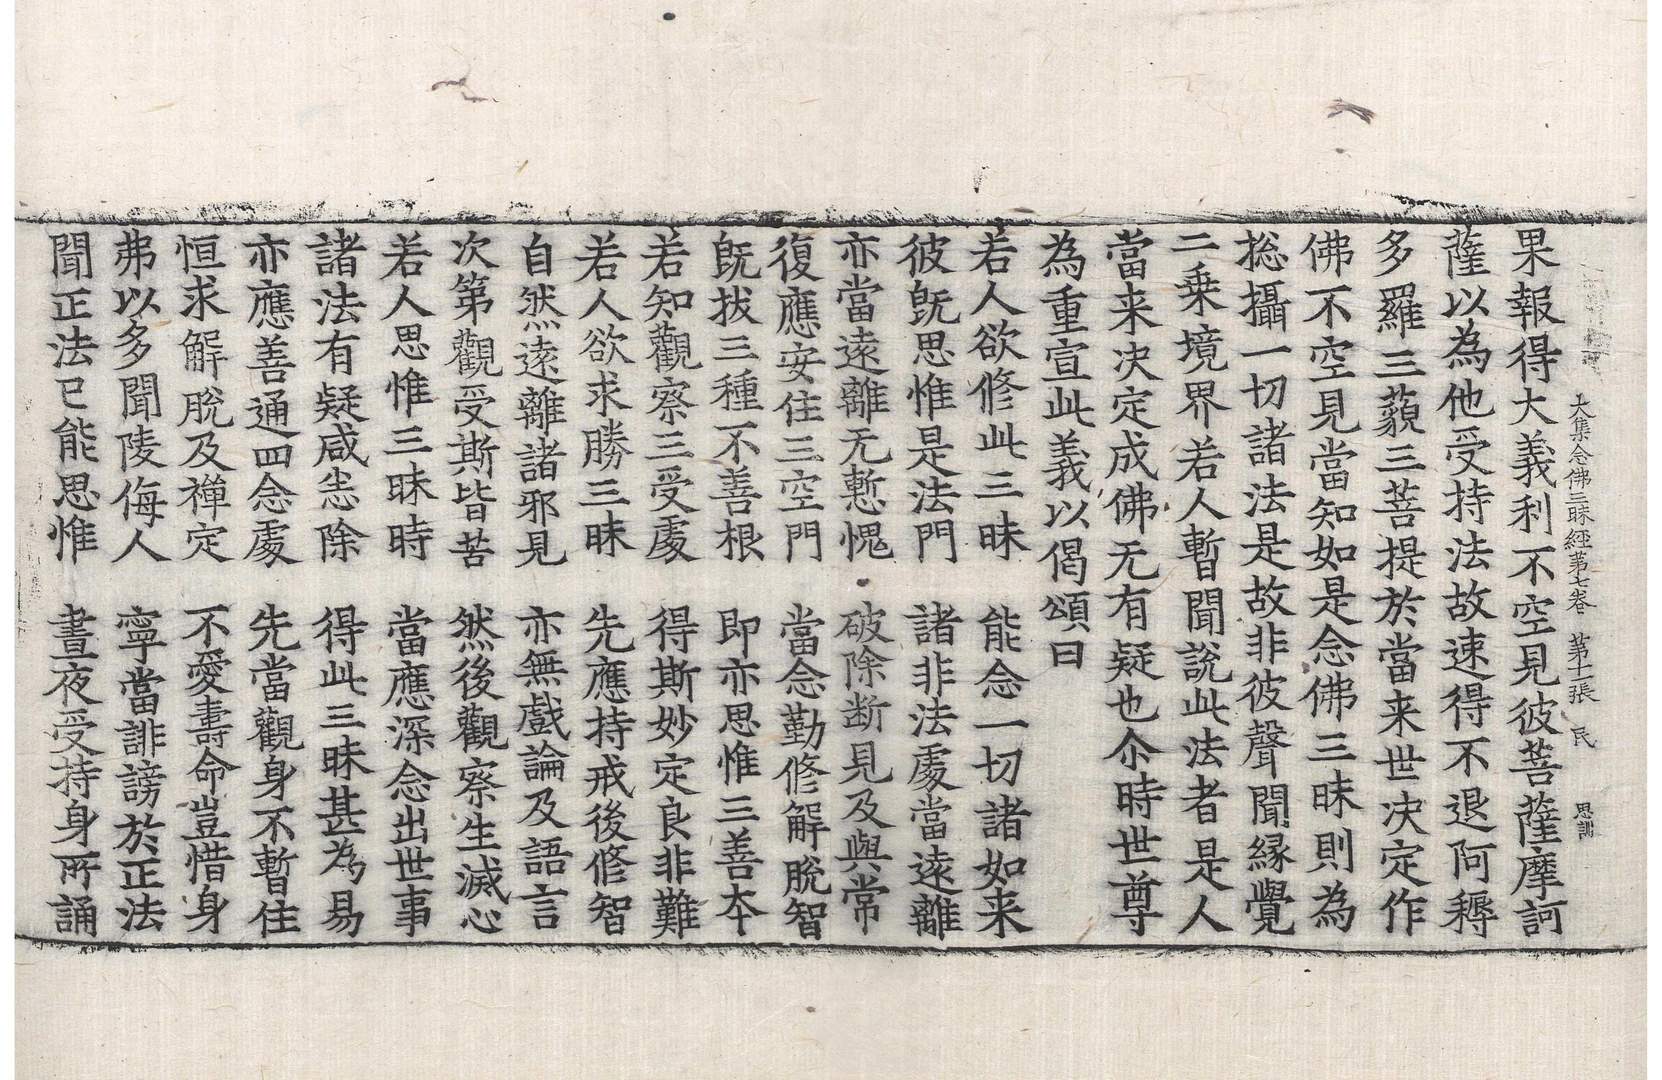 大集念佛三昧經第七卷 第十一張 民 思訓
果報得大義利不空見彼菩薩摩訶
薩以為他受持法故速得不退阿耨
多羅三藐三菩提於當来世决定作
佛不空見當知如是念佛三昧則為
捴攝一切諸法是故非彼聲聞緣覺
二乗境界若人暫聞說此法者是人
當来决定成佛无有疑也尒時世尊
為重宣此義以偈頌曰
若人欲修此三昧 能念一切諸如来
彼旣思惟是法門 諸非法處當遠離
亦當遠離无慙愧 破除断見及與常
復應安住三空門 當念勤修解脫智
旣拔三種不善根 即亦思惟三善本
若知觀察三受處 得斯妙定良非難
若人欲求勝三昧 先應持戒後修智
自然遠離諸邪見 亦無戲論及語言
次第觀受斯皆苦 然後觀察生滅心
若人思惟三昧時 當應深念出世事
諸法有疑咸悉除 得此三昧甚為易
亦應善通四念處 先當觀身不暫住
恒求解脫及禪定 不愛壽命豈惜身
弗以多聞陵侮人 寧當誹謗於正法
聞正法已能思惟 晝夜受持身所誦